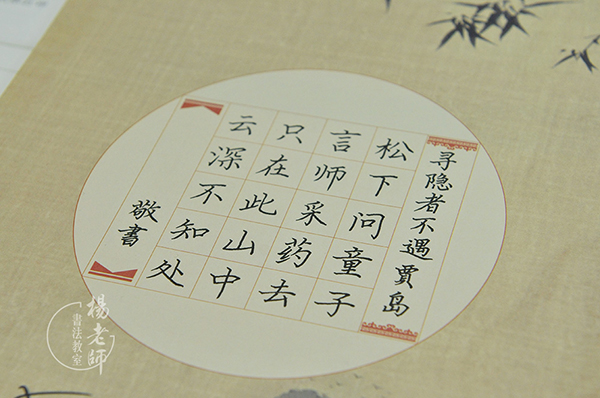 寻隐者不遇 賈岛
松下问童子
言师采药去
只在此山中
云深不知处
敬書
楊老師
書法教室